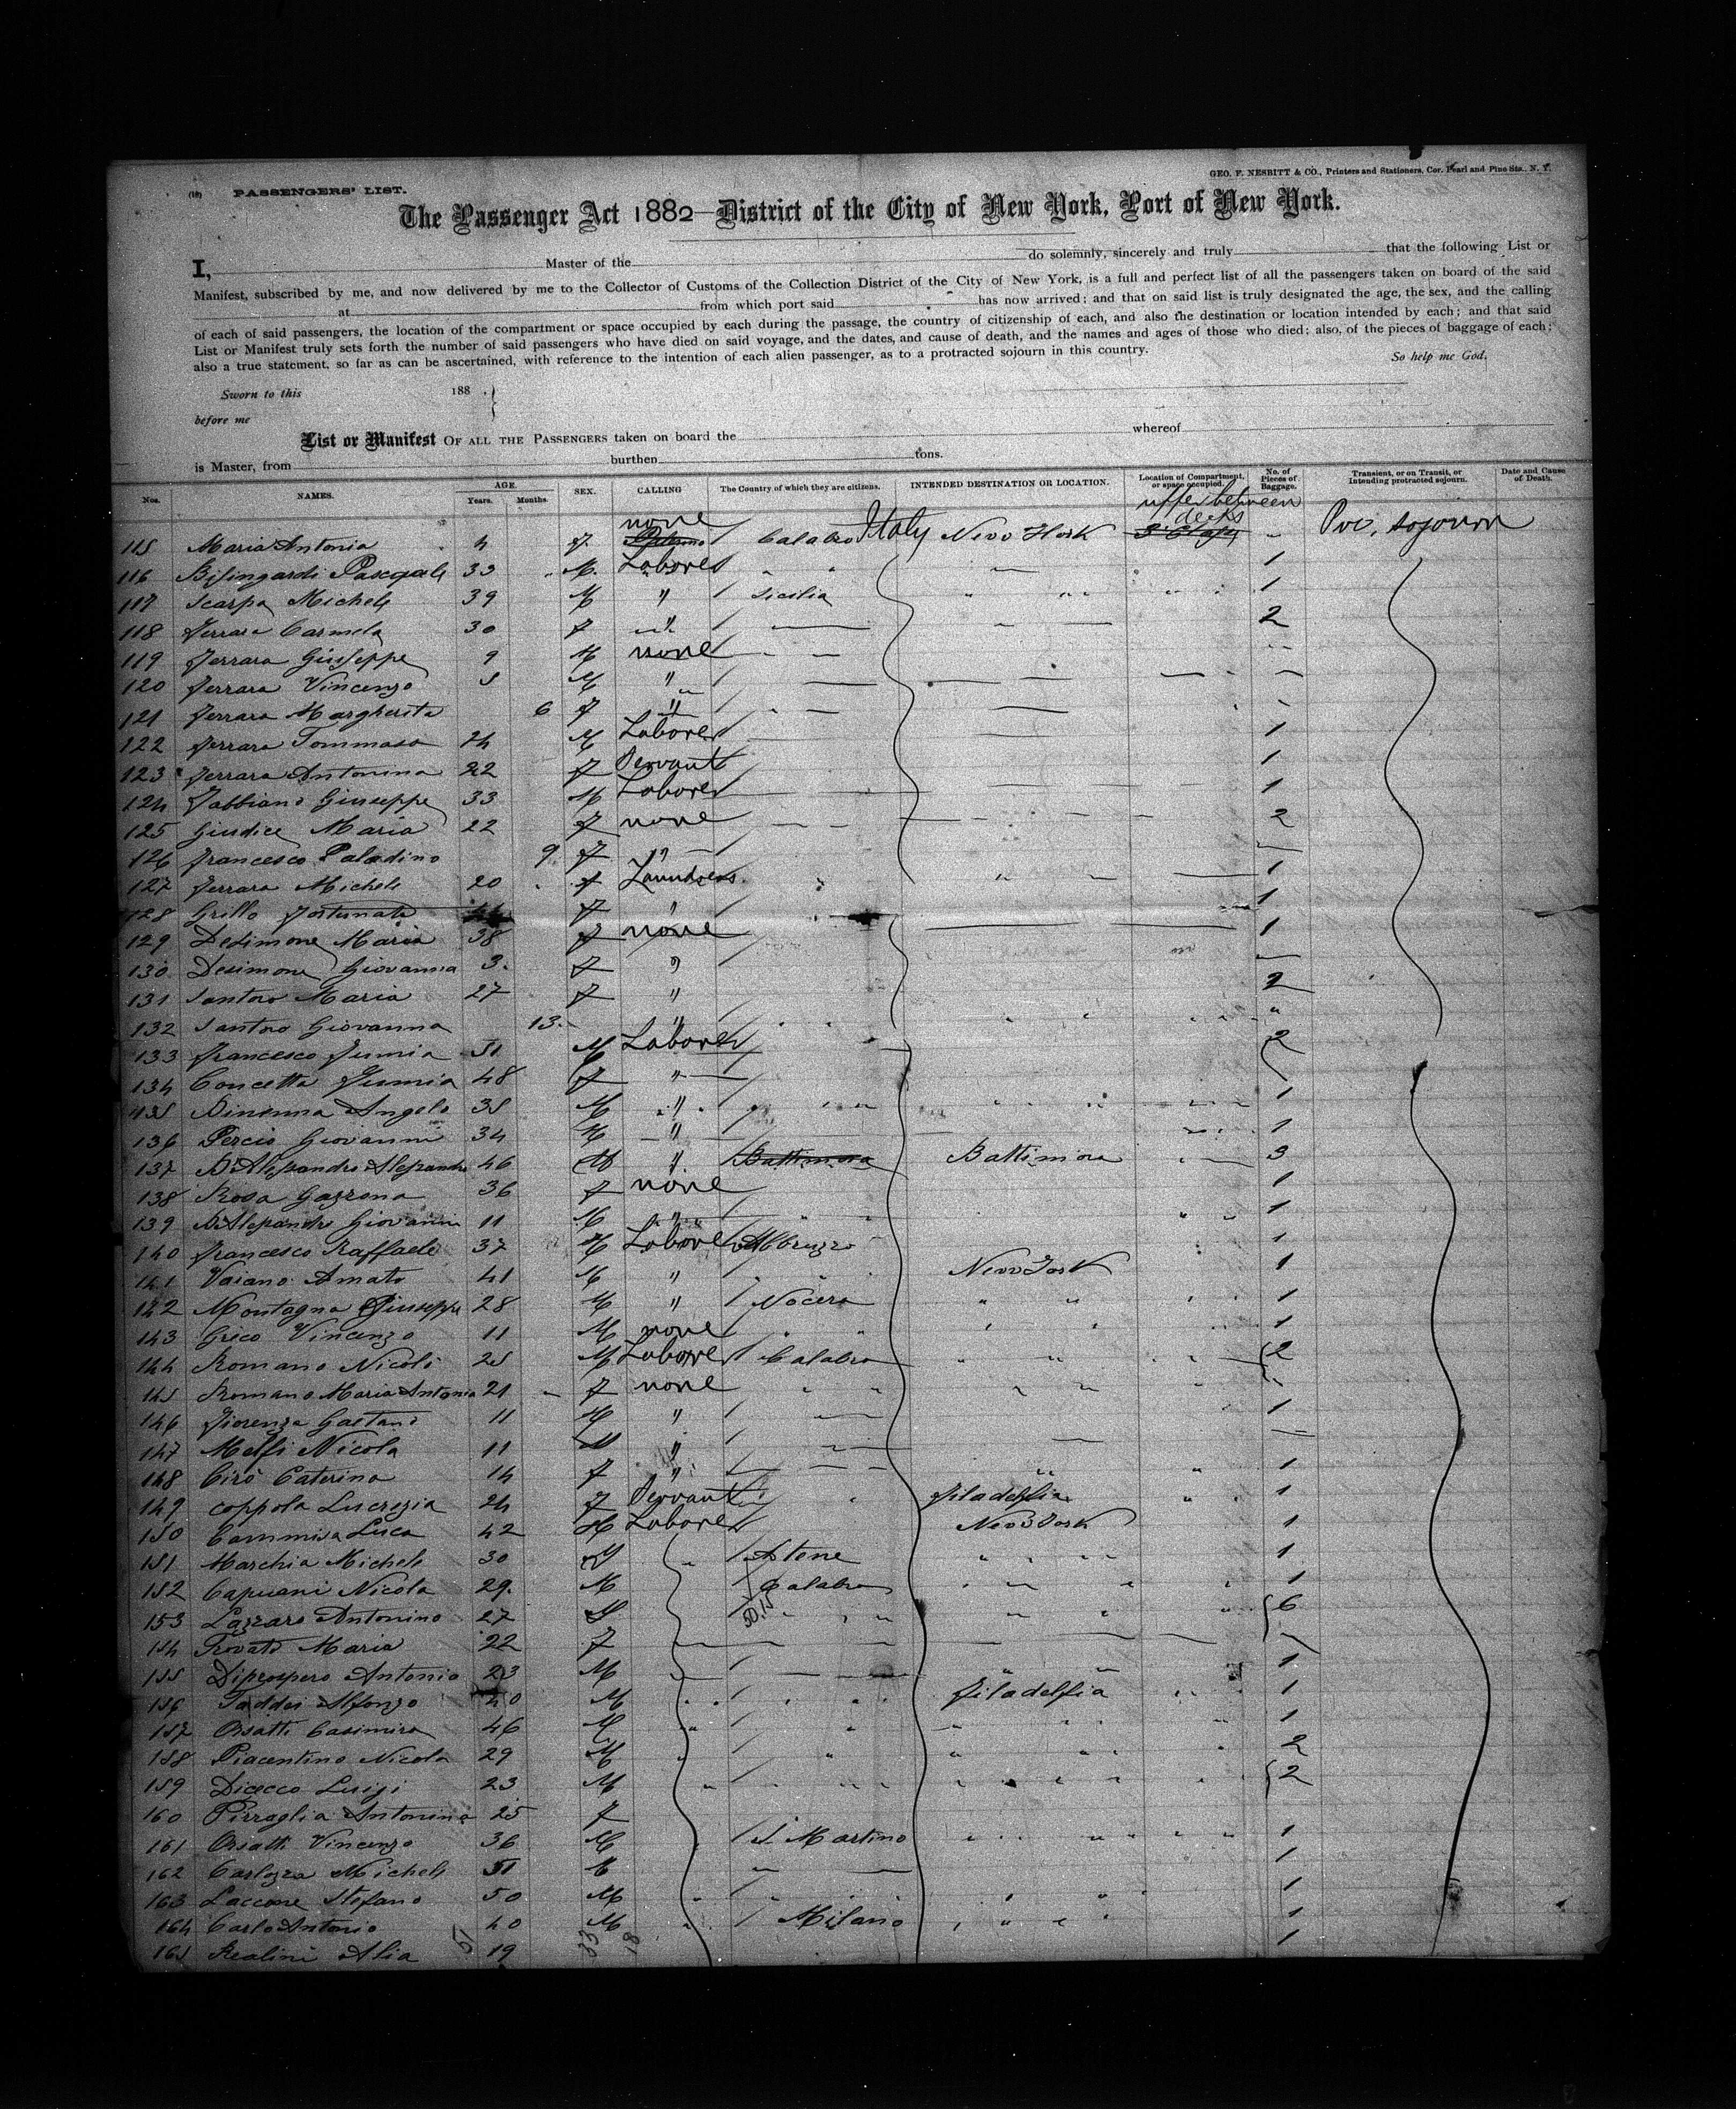 GEO. F. NESBITT & CO., Printers and Stationers, Cor. Pearl and Pine Sts., N. Y.
(18) PASSENGERS' LIST.
The Passenger Act 1882 District of the City of New York, Port of New York.
I, Master of the do solemnly, sincerely and truly that the following List or
Manifest, subscribed by me, and now delivered by me to the Collector of Customs of the Collection District of the City of New York, is a full and perfect list of all the passengers taken on board of the said
at from which port said has now arrived; and that on said list is truly designated the age, the sex, and the calling
of each of said passengers, the location of the compartment or space occupied by each during the passage, the country of citizenship of each, and also the destination or location intended by each; and that said
List or Manifest truly sets forth the number of said passengers who have died on said voyage, and the dates, and cause of death, and the names and ages of those who died; also, of the pieces of baggage of each;
also a true statement, so far as can be ascertained, with reference to the intention of each alien passenger, as to a protracted sojourn in this country. So help me God.
Sworn to this 188 .
before me
List or Manifest OF ALL THE PASSENGERS taken on board the whereof
is Master, from burthen tons.
Nos. NAMES. AGE. Years. Months. SEX. CALLING The Country of which they are citizens. INTENDED DESTINATION OR LOCATION. Location of Compartment, or space occupied. No. of Pieces of Baggage. Transient, or on Transit, or Intending protracted sojourn. Date and Cause of Death.
none upper between decks
115 Maria Antonia 4 f. Calabro Italy New York Pro, sojourn
116 Pasquale 33 M. Labore 1
117 Scarpa Michele 39 M " Sicilia 1
118 Ferrara Carmela 30 f " 2
119 Ferrara Giuseppe 9 M none
120 Ferrara Vincenzo 5 M "
121 Ferrara Margherita 6 f "
122 Ferrara Tommaso 24 M Labore 1
123 Ferrara Antonina 22 f Servant 1
124 Fabbiano Giuseppe 33 M Labore 1
125 Giudice Maria 22 f none 2
126 Francesco Paladino 9 f "
127 Ferrara Michele 20 f Laundress 1
128 Grillo Fortunata f " 1
129 Desimone Maria 38 f none 1
130 Desimone Giovanna 3. f "
131 Santoro Maria 27 f " 2
132 Santoro Giovanna 13 " "
133 Francesco Jumia 51 M Labore 2
134 Concetta Jumia 48 f "
135 Angelo 35 M " 1
136 Percio Giovanni 34 M " 1
137 D'Alessandro Alessandro 46 M " Battimora Battimora 3
138 Rosa Gazzona 36 f none 1
139 D'Alessandro Giovanni 11 M " 1
140 Francesco Raffaele 37 M Labore Abbruzzo 1
141 Vaiano Amato 41 M " New York 1
142 Montagna Giuseppe 28 M " Nocera 1
143 Greco Vincenzo 11 M none 1
144 Romano Nicolò 25 M Labore Calabro 2
145 Romano Maria Antonia 21 f none
146 Fiorenza Gaetano 11 M " 1
147 Melfi Nicola 11 M "
148 Cirò Caterina 14 f " 1
149 Coppola Lucrezia 24 f Servant Filadelfia 1
150 Cammisa Luca 42 M Labore New York 1
151 Marchia Michele 30 M Atene 1
152 Capuani Nicola 29. M Calabro 1
153 Lazzaro Antonino 27 6
154 Rovato Maria 22 f
155 Diprospero Antonio 23 M 1
156 Taddei Alfonzo 40 M Filadelfia 1
157 Orsatti Casimiro 46 M 1
158 Piacentino Nicola 29 M 2
159 Dicecco Luigi 23 M 2
160 Pirraglia Antonina 25 f
161 Orsatti Vincenzo 36 M S. Martino 1
162 Carlozza Michele 51 1
163 Laccone Stefano 50 M 1
164 Carlo Antonio 40 M Milano 1
165 Realini Alia 19 1